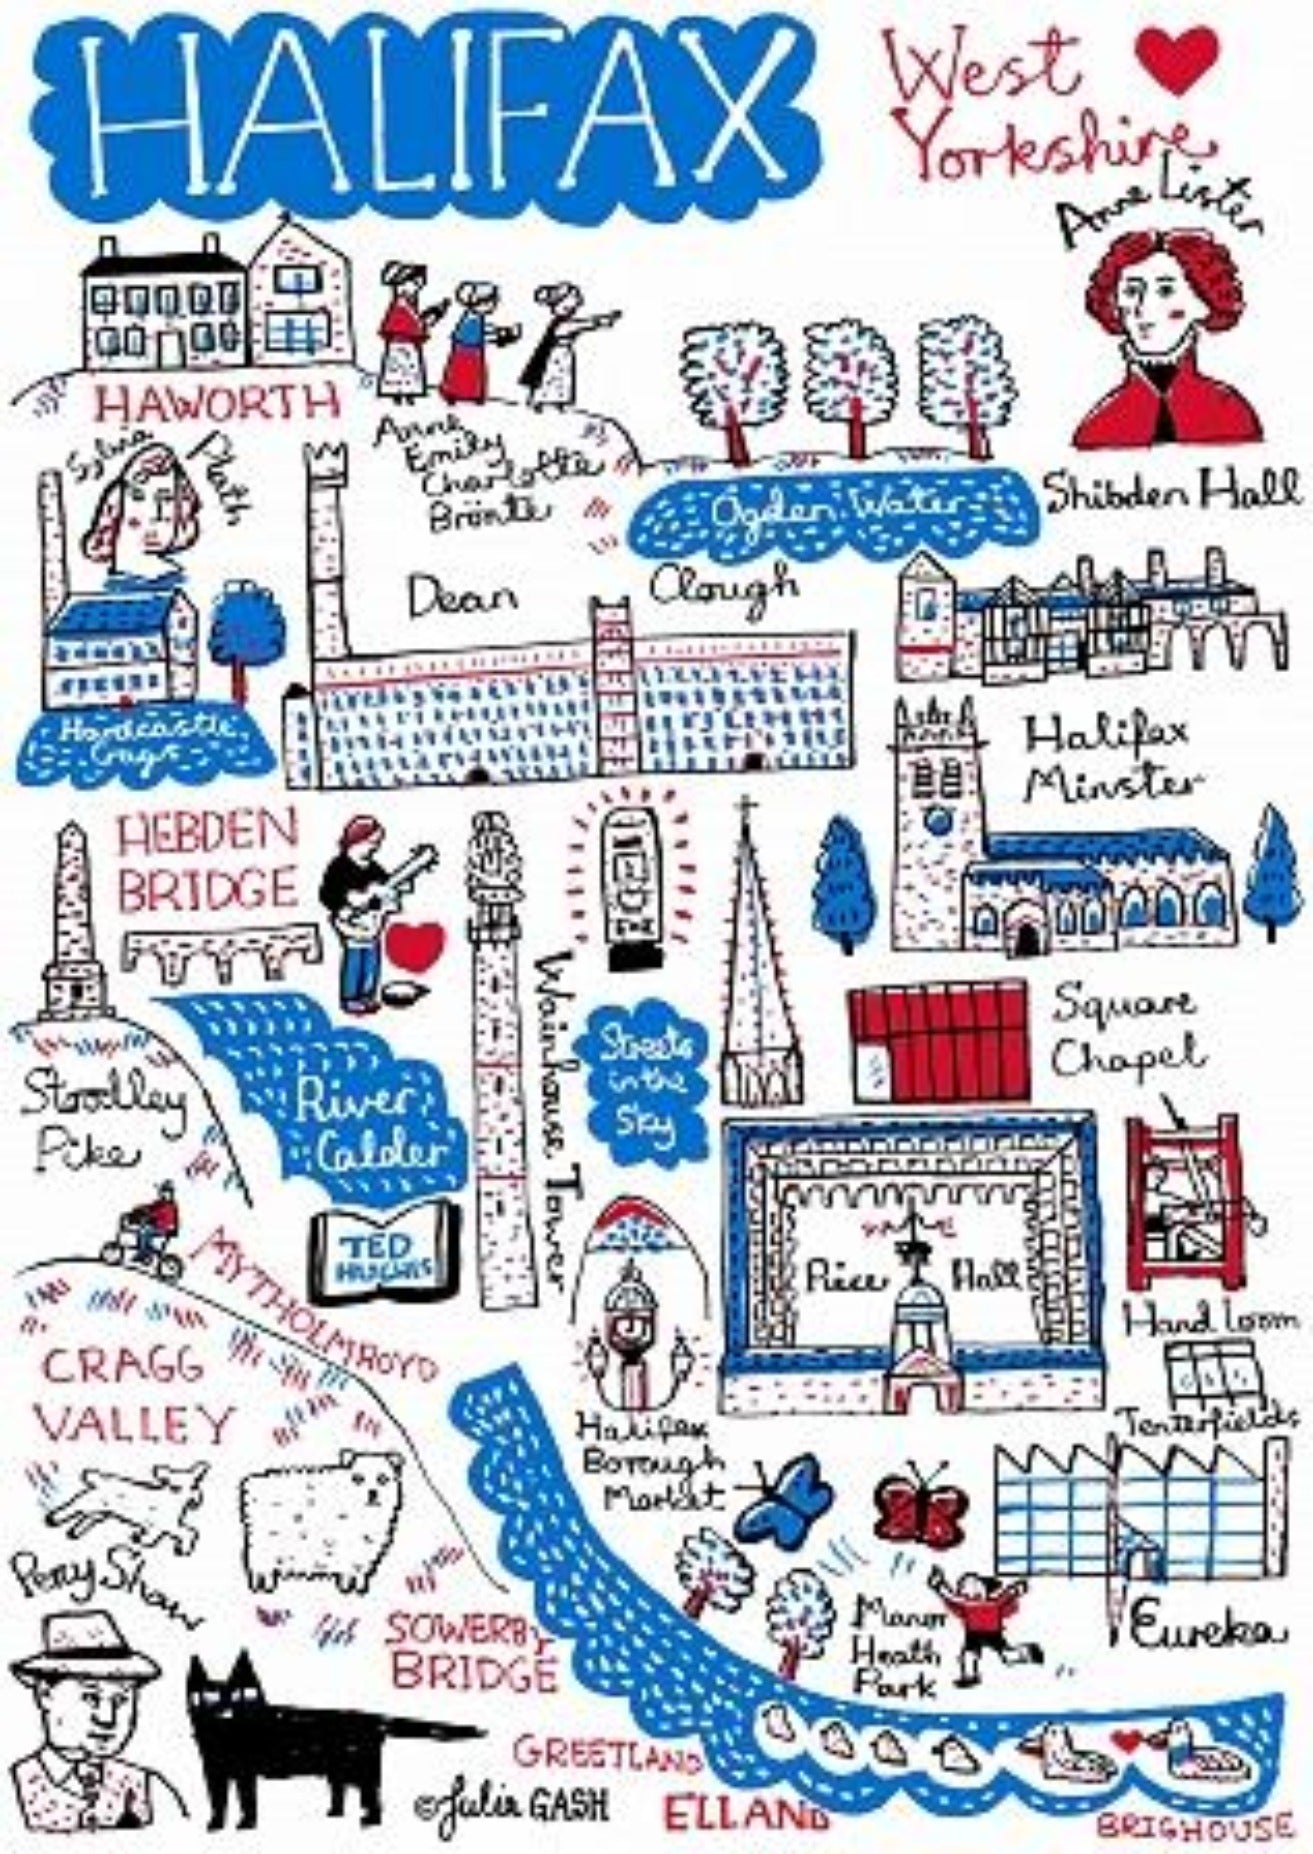 HALIFAX
West
Yorkshire
Anne Lister
HAWORTH
Anne
Emily
Charlotte
Brontë
Sylvia Plath
Ogden Water
Shibden Hall
Dean Clough
Hardcastle
Crags
Halifax
Minster
HEBDEN
BRIDGE
Wainhouse Tower
Streets
in the
Sky
Square
Chapel
Stoodley
Pike
River
Calder
TED
HUGHES
Piece Hall
Hand Loom
MYTHOLMROYD
CRAGG
VALLEY
Halifax
Borough
Market
Tenterfields
Percy Shaw
Manor
Heath
Park
Eureka
SOWERBY
BRIDGE
GREETLAND
©Julia GASH
ELLAND
BRIGHOUSE